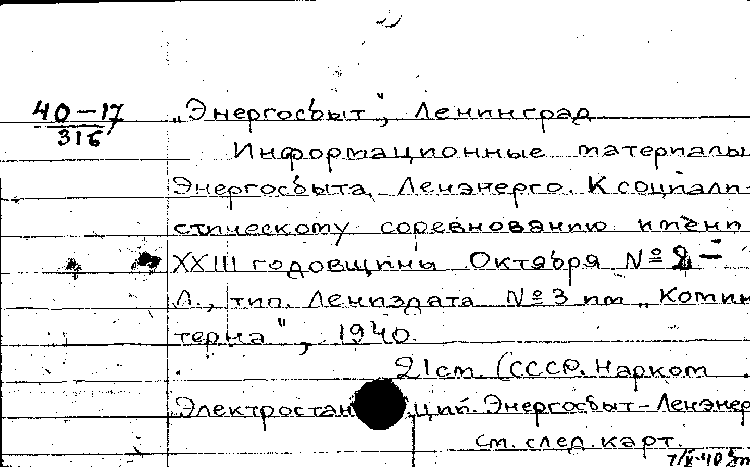 40-17
316
„Энергосбыт", Ленинград
Информационные материалы
Энергосбыта Ленэнерго. К социали-
стическому соревнованию имени
XXIII годовщины Октября №2-
Л., тип. Лениздата №3 им „Комин
терна", 1940.
21см. (СССР. Нарком
Электростанций. Энергосбыт-Ленэнер
См. след. карт.